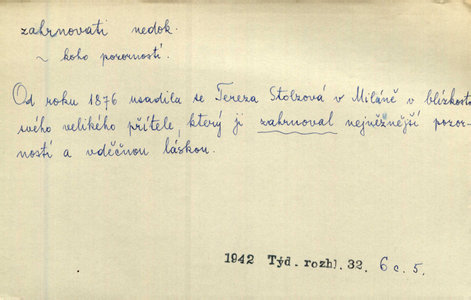 zahrnovati nedok.
~ koho pozorností.
Od roku 1876 usadila se Tereza Stolzová v Miláně v blízkosti
svého velikého přítele, který ji zahrnoval nejněžnější pozor-
ností a vděčnou láskou.
1942 Týd. rozhl. 32. 6 c. 5.